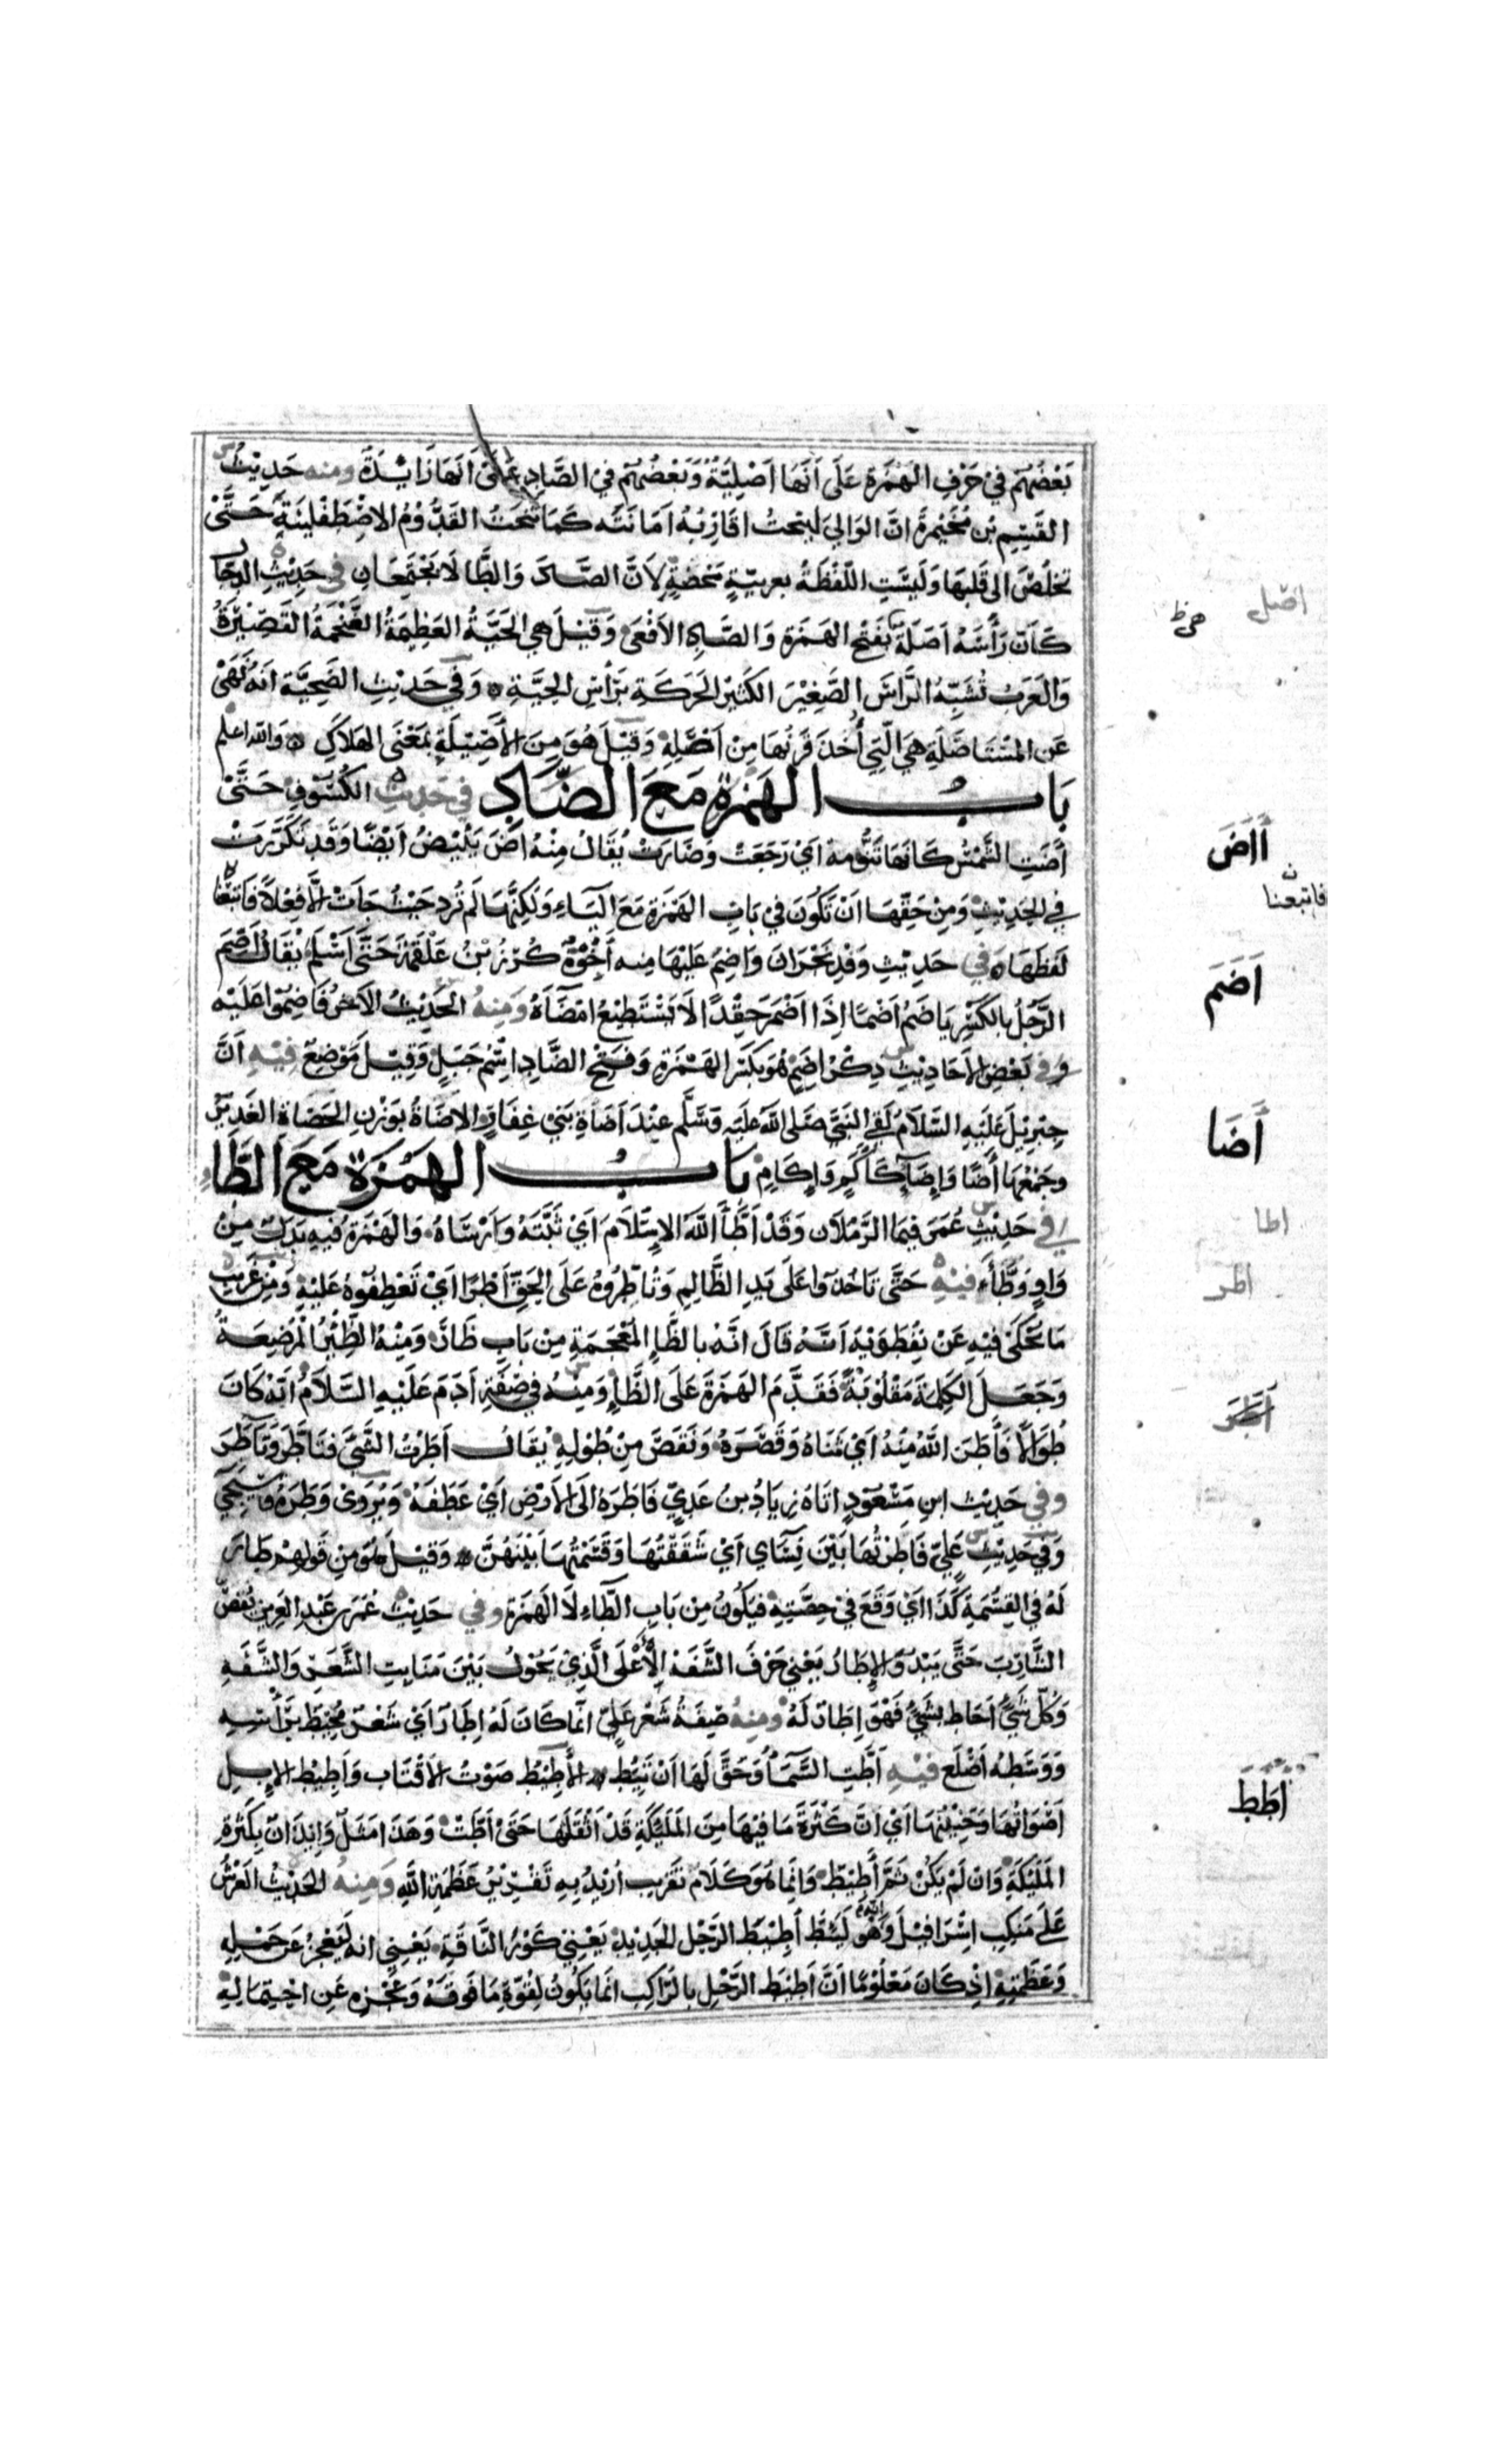 بَعْضُهُمْ فِيْ حَرْفِ الهَمْزَةِ عَلَى اَنَّهَا اَصْلِيَّةٌ وَبَعْضُهُمْ فِي الصَّادِ عَلَى اَنَّهَا زَايِدَةٌ ومنه حَدِيْثُ
القَسِمِ بْنِ مُخَيْمِرَةَ انَّ الوَالِيَ لَيَنْحِتُ اَقَارِبُهُ اَمَانَتَه كَمَا تَنْحِتُ القَدُّوْمُ الاِصْطَفْلِيْنَةَ حَتَّى
تَخلُصَ الى قَلبِهَا وَلَيْسَتِ اللَّفْظَةُ بعربيّةٍ مَحْضَةٍ لِأَنَّ الصَّادَ وَالطَّا لَا يَجْتَمِعَانِ في حَدِيْثِ الدجال
كَاَنَّ رَأْسَهُ اَصَلَةٌ بِفَتْحِ الهَمْزَةِ وَالصَّادِ الاَفْعَى وَقِيْلَ هي الحَيَّةُ العَظِيمَةُ الضَّخْمَةُ القَصِيْرَةُ
وَالعَرَبُ تُشَبِّهُ الرَّاسَ الصَّغِيْرَ الكَثِيْرَ الحَرَكَةِ بِرَأْسِ الحِيَّةِ وَفِي حَدِيْثِ الضَحِيَّةِ اَنَّهُ نَهَى
عَنِ المُسْتَاصَلَةِ هِيَ الَّتِي اُخِذَ قَرْنُهَا مِنْ اَصْلِهِ وَقِيْلَ هُوَ مِنَ الأَصِيْلَةِ بِمَعْنَى الهَلَاكِ وَاللّه اعلم
بَابُ الهَمْزَةِ مَعَ الضَّادِ في حَدِيثِ الكُسُوْفِ حَتَّى
أَضَتِ الشَّمْسُ كَانَهَا تَنُّومَة اَىْ رَجَعَتْ وَصَارَتْ يُقَالُ مِنْهُ اضَ يَئِيْضُ اَيْضًا وَقَدْ تَكَرَّرَتْ
فِي الحَدِيْثِ وَمِنْ حَقِّهَا اَنْ تَكُوْنَ فِيْ بَابِ الهَمْزَةِ مَعَ اليَاءِ وَلَكِنَّهَا لَمْ تُرِد حَيْثُ جَاتْ الَّا فِعْلاً فَاتبَعْنَا
لَفظَهَا وَفي حَدِيْثِ وَفْدِ نَجْرَانَ وَاضِمَ عَلَيْهَا مِنه أَخُوْهُ كُرْزُ بْنُ عَلْقَمَةَ حَتَّى اَسْلَمَ يُقَالُ اَضِمَ
الرَّجُلُ بِالكَسْرِ يَاضَمُ اَضَمًا اِذَا اَضْمَرَ حِقْدًا لَا يَسْتَطِيْعُ اِمْضَآءَهُ وَمِنْهُ الحَدِيْثُ الاَخَرُ فَاَضِمُوْا عَلَيْه
وَفي بَعْضِ الاَحَادِيْثِ ذِكْرُ اِضَمٍ هُوَ بِكَسْرِ الهَمْزَةِ وَفَتْحِ الضَّادِ اِسْمُ جَبَلٍ وَقِيْلَ مَوْضِعٌ فِيْهِ اَنَّ
جِبْرِيْلَ عَلَيْهِ السَّلَامُ لَقِيَ النَّبِيَّ صَلَى اللّه علَيْه وَسَلَّم عِنْدَ اَضَاةِ بَنِيْ غِفَارٍ الاَضَاةُ بِوَزْنِ الحَصَاةِ الغَدِيْرُ
وَجَمْعُهَا أَضًا وَإِضَآءٌ كَأَكَمٍ وَإِكَامٍ بَابُ الهَمْزَةِ مَعَ الطَّاءِ
في حَدِيْثِ عُمَرَ فِيمَا الرَّمَلَانِ وَقَدْ اَطَّأَ اللّهُ الاِسْلَامَ اَيْ ثَبَّتَهُ وَاَرْسَاهُ وَالهَمْزَةُ فِيهِ بَدَلٌ مِنْ
وَاوِ وَطَّأَ فِيْهِ حَتَّى تَاخُذُوا عَلَى يَدِ الظَّالِمِ وَتَاْطِرُوْهُ عَلَى الحَقِّ اَطْرًا اَيْ تَعْطِفُوهُ عَلَيْهِ وَمِنْ غَرِيْبِ
مَا يُحْكَى فِيْهِ عَنْ نِفْطَوَيْهِ اَنَّهُ قَالَ انَّهُ بالظَّاءِ المُعْجَمَةِ مِنْ بَابِ ظَأَرَ وَمِنْهُ الظِّئْرُ المُرْضِعَةُ
وَجَعَلَ الكَلِمَةَ مَقْلُوْبَةً فَقَدَّمَ الهَمْزَةَ عَلَى الظَّاءِ وَمِنْهُ فِي صِفَةِ اٰدَمَ عَلَيْهِ السَّلَامُ اَنَّه كَانَ
طُوَالاً فَأَطَرَ اللّهُ مِنْهُ اَيْ ثَنَاهُ وَقَصَّرَهُ وَنَقَصَ مِنْ طُوْلِهِ يُقَالُ اَطَرْتُ الشَّيَ فَتَاَطَّرَ وَتَاَطَّرَ
وفي حَدِيْثِ ابن مَسْعُوْدٍ اتَاهُ زِيَادُ بنُ عَدِيٍّ فَاطَرَهُ اِلَى الاَرْضِ اَيْ عَطَفَهُ وَيُرْوَى وَطَدَهُ وَسَيَجِيُ
وَفِي حَدِيْثِ عَلِيٍّ فَاَطَرْتُهَا بَيْنَ نِسَآى اَيْ شَقَقْتُهَا وَقَسَمْتُهَا بَيْنَهُنَّ وَقِيْلَ هُوَ مِنْ قَوْلِهِمْ طَارَ
لَهُ فِي القِسْمَةِ كَذَا اَيْ وَقَعَ فِيْ حِصَّتِهِ فَيَكُوْنُ مِنْ بَابِ الطَّاءِ لَا الهَمْزَةِ وَفي حَدِيْثِ عُمَر بن عَبْدِ العَزِيزِ يُقَصُّ
الشَّارِبُ حَتَّى يَبْدُوَ الإِطَارُ يَعْنِي حَرْفَ الشَّفَةِ الأَعْلَى الَّذِي يَحُوْلُ بَيْنَ مَنَابِتِ الشَّعَرِ وَالشَّفَةِ
وَكُلُّ شَيْءٍ اَحَاطَ بِشَيْءٍ فَهُوَ إِطَارٌ لَهُ ومِنْهُ صِفَةُ شَعْرِ عَلِيٍّ انَّمَا كَانَ لَهُ اِطَارٌ اَيْ شَعَرٌ مُحِيْطٌ بِرَأْسِهِ
وَوَسَطُهُ اَصْلَع فِيْهِ اَطَّتِ السَّمَآءُ وَحَقَّ لَهَا اَنْ تَئِطَّ الأَطِيْطُ صَوْتُ الاَقْتَابِ وَأَطِيْطُ الإِبِلِ
اَصْوَاتُهَا وَحَنِيْنُهَا اَيْ اَنَّ كَثْرَةَ مَا فِيهَا مِنَ المَلٰئِكَةِ قَدْ اَثْقَلَهَا حَتَّى اَطَّتْ وَهَذَا مَثَلٌ وَإِيْذَانٌ بِكَثْرَةِ
المَلٰئِكَةِ وَاِنْ لَمْ يَكُنْ ثَمَّ أَطِيْطٌ وَانَّمَا هُوَ كَلَامُ تَقْرِيبٍ اُرِيْدَ بِهِ تَقْرِيْرُ عَظَمَةِ اللّهِ وَمِنْهُ الحَدِيْثُ العَرْشُ
عَلَى مَنْكِبِ اِسْرَافِيْلَ وَاِنَّهُ لَيَئِطُّ أَطِيْطَ الرَّحْلِ الجَدِيْدِ يَعْنِي كَوْرَ النَّاقَةِ يَعْنِي انه لَيَعْجِزُ عَنْ حَمْلِهِ
وَعَظَمَتِهِ اِذْ كَانَ مَعْلُوْمًا اَنَّ اَطِيْطَ الرَّحْلِ بِالرَّاكِبِ اِنَّمَا يَكُوْنُ لِقُوَّةِ مَا فَوْقَهُ وَعَجْزِهِ عَنِ احْتِمَالِهِ
اصل
أَاضَ
فاتبعنا
اَضَمَ
أَضَا
اطا
اطر
اَطَرَ
اَطَطَ